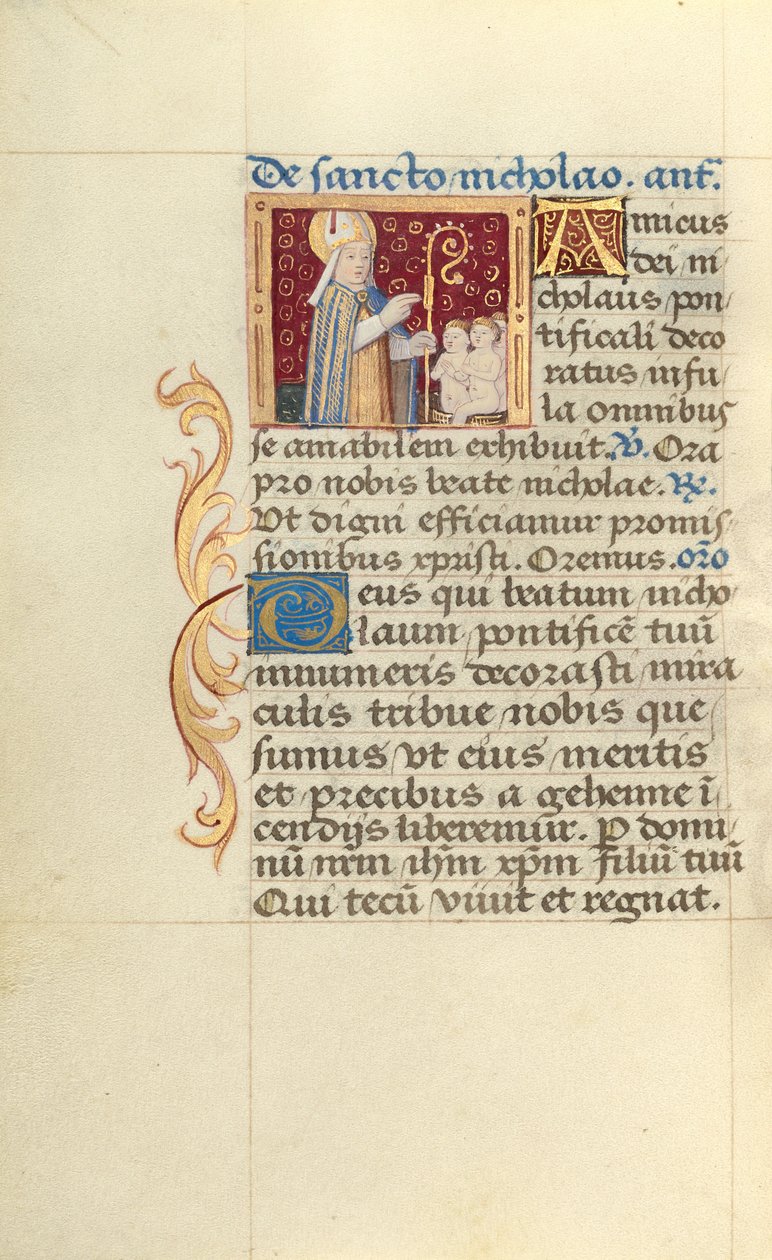 De sancto nicholao. ant̄.
Amicus
dei ni
cholaus pon
tificali deco
ratus infu
la omnibus
se amabilem exhibuit. ℣. Ora
pro nobis beate nicholae. ℞.
Ut digni efficiamur promis
sionibus xpristi. Oremus. or̄o
Deus qui beatum nicho
laum pontificē tuū
innumeris decorasti mira
culis tribue nobis que
sumus ut eius meritis
et precibus a gehenne ī
cendijs liberemur. P domi
nū nr̄m ih̄m xp̄m filiū tuū
Qui tecū vivit et regnat.